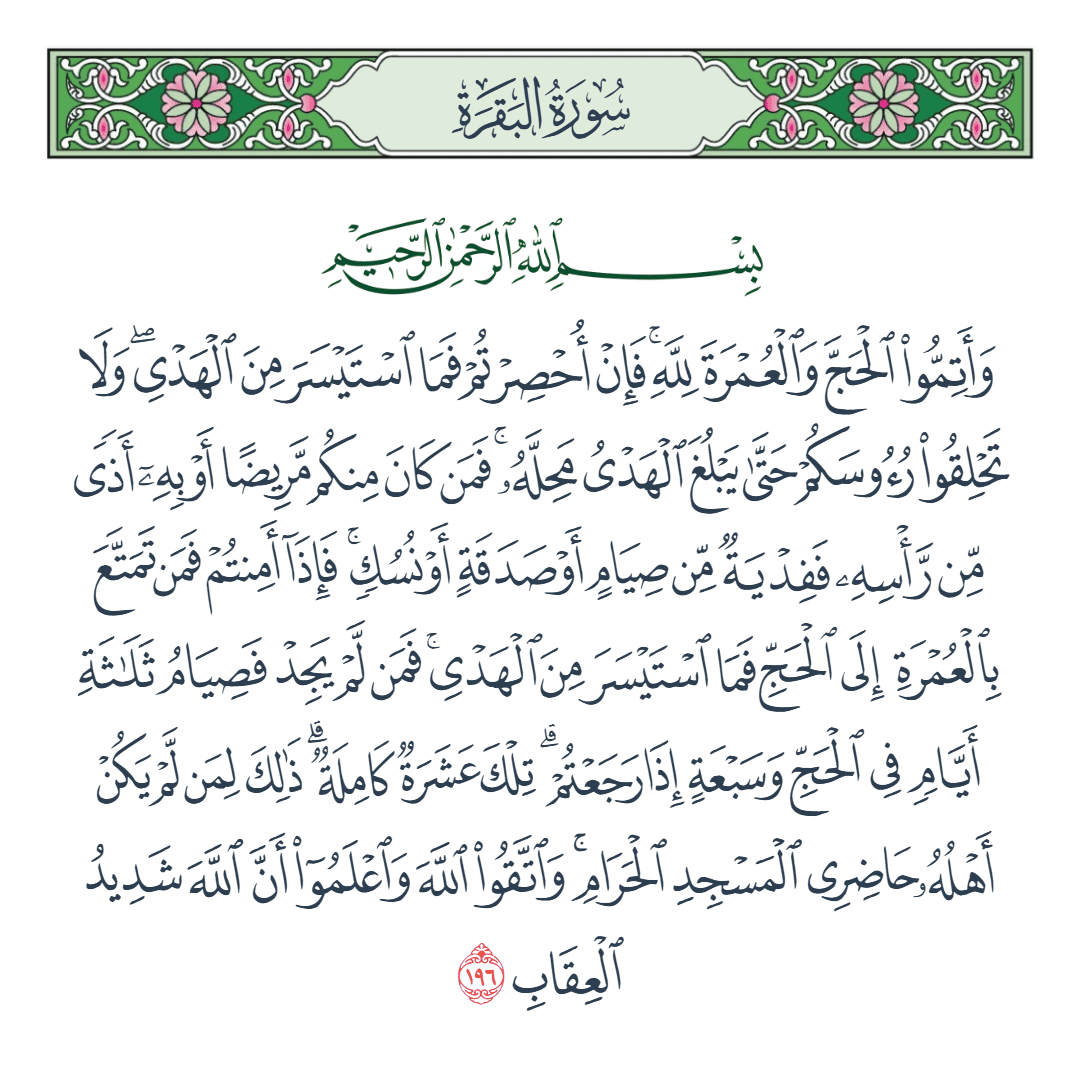 سُورَةُ الْبَقَرَةِ
بِسْمِ ٱللَّهِ ٱلرَّحْمَٰنِ ٱلرَّحِيمِ
وَأَتِمُّوا۟ ٱلْحَجَّ وَٱلْعُمْرَةَ لِلَّهِ ۚ فَإِنْ أُحْصِرْتُمْ فَمَا ٱسْتَيْسَرَ مِنَ ٱلْهَدْىِ ۖ وَلَا
تَحْلِقُوا۟ رُءُوسَكُمْ حَتَّىٰ يَبْلُغَ ٱلْهَدْىُ مَحِلَّهُۥ ۚ فَمَن كَانَ مِنكُم مَّرِيضًا أَوْ بِهِۦٓ أَذًى
مِّن رَّأْسِهِۦ فَفِدْيَةٌ مِّن صِيَامٍ أَوْ صَدَقَةٍ أَوْ نُسُكٍ ۚ فَإِذَآ أَمِنتُمْ فَمَن تَمَتَّعَ
بِٱلْعُمْرَةِ إِلَى ٱلْحَجِّ فَمَا ٱسْتَيْسَرَ مِنَ ٱلْهَدْىِ ۚ فَمَن لَّمْ يَجِدْ فَصِيَامُ ثَلَٰثَةِ
أَيَّامٍ فِى ٱلْحَجِّ وَسَبْعَةٍ إِذَا رَجَعْتُمْ ۗ تِلْكَ عَشَرَةٌ كَامِلَةٌ ۗ ذَٰلِكَ لِمَن لَّمْ يَكُنْ
أَهْلُهُۥ حَاضِرِى ٱلْمَسْجِدِ ٱلْحَرَامِ ۚ وَٱتَّقُوا۟ ٱللَّهَ وَٱعْلَمُوٓا۟ أَنَّ ٱللَّهَ شَدِيدُ
ٱلْعِقَابِ ١٩٦